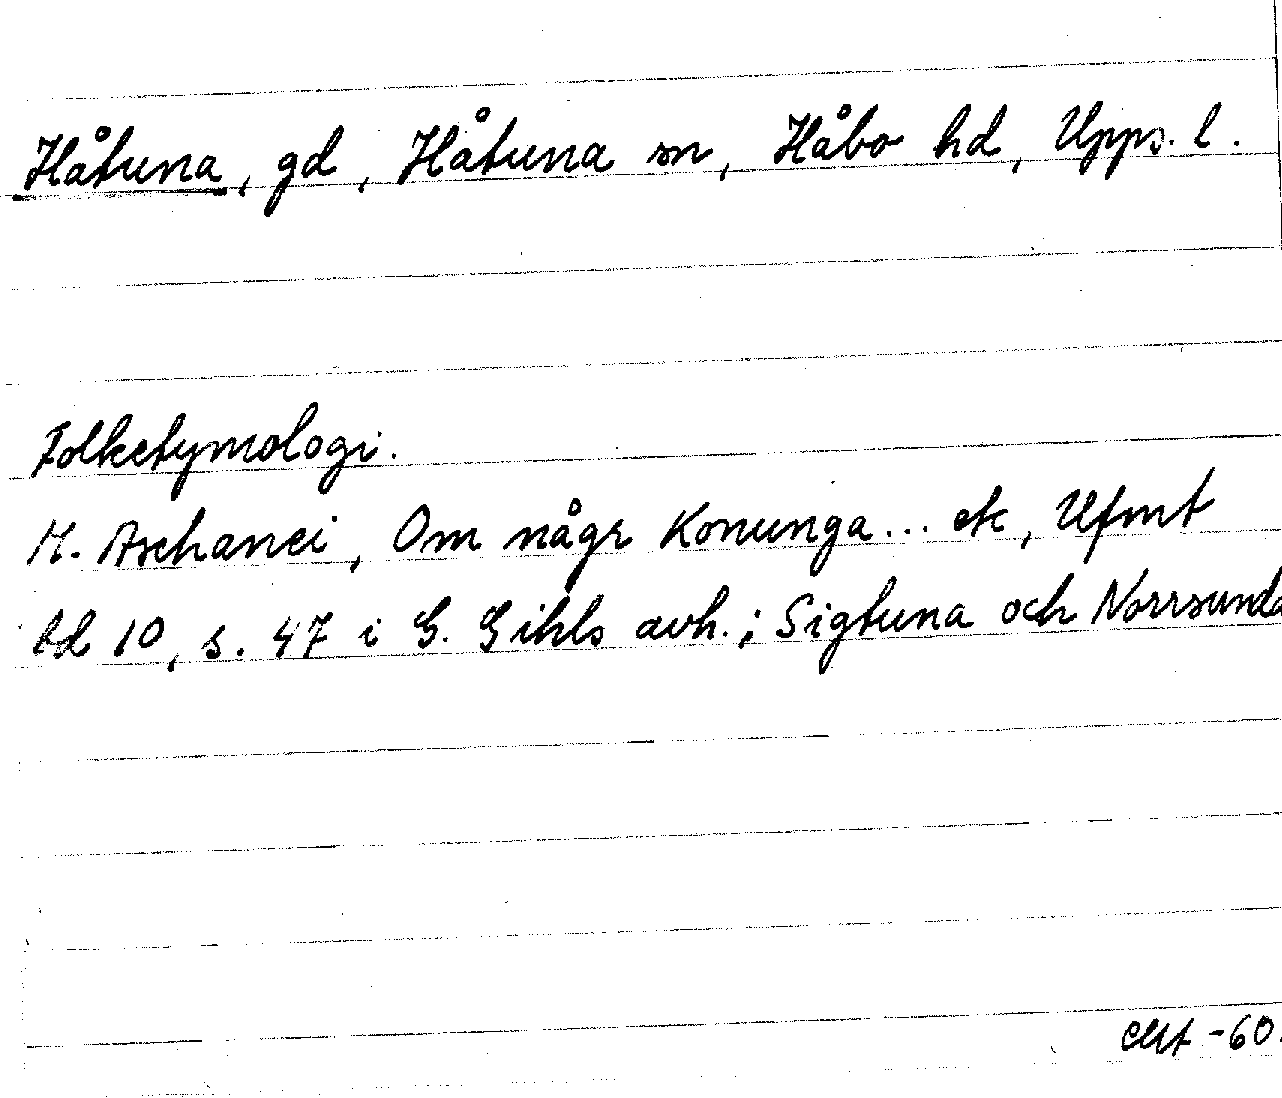 Håtuna, gd, Håtuna sn, Håbo hd, Upps. l.
Folketymologi.
M. Aschanei, Om någr Konunga... etc, Ufmt
bd 10, s. 47 i G. Gihls avh.; Sigtuna och Norrsunda
-60.